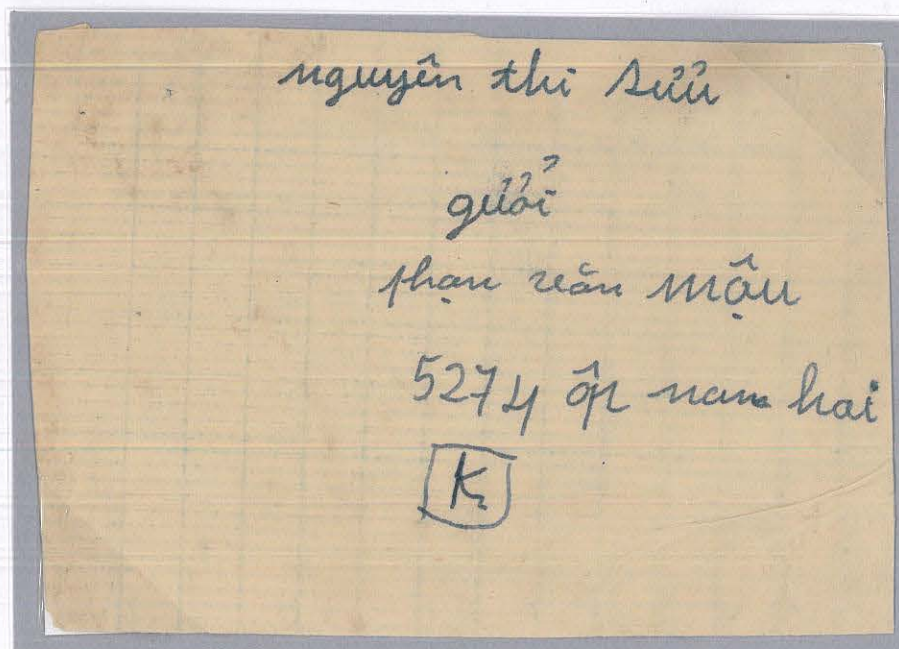 nguyên thi Sửu
gửỏi
phạn văn mậu
5274 ôp nam hai
K